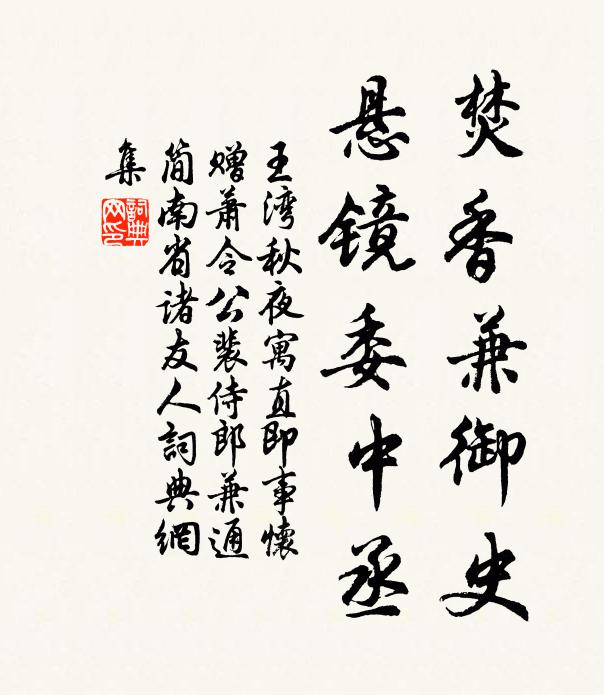 焚香兼御史
悬镜委中丞
王湾秋夜寓直即事懷
赠萧令公裴侍郎兼通
简南省诸友人詞典網
集
詞典
网印